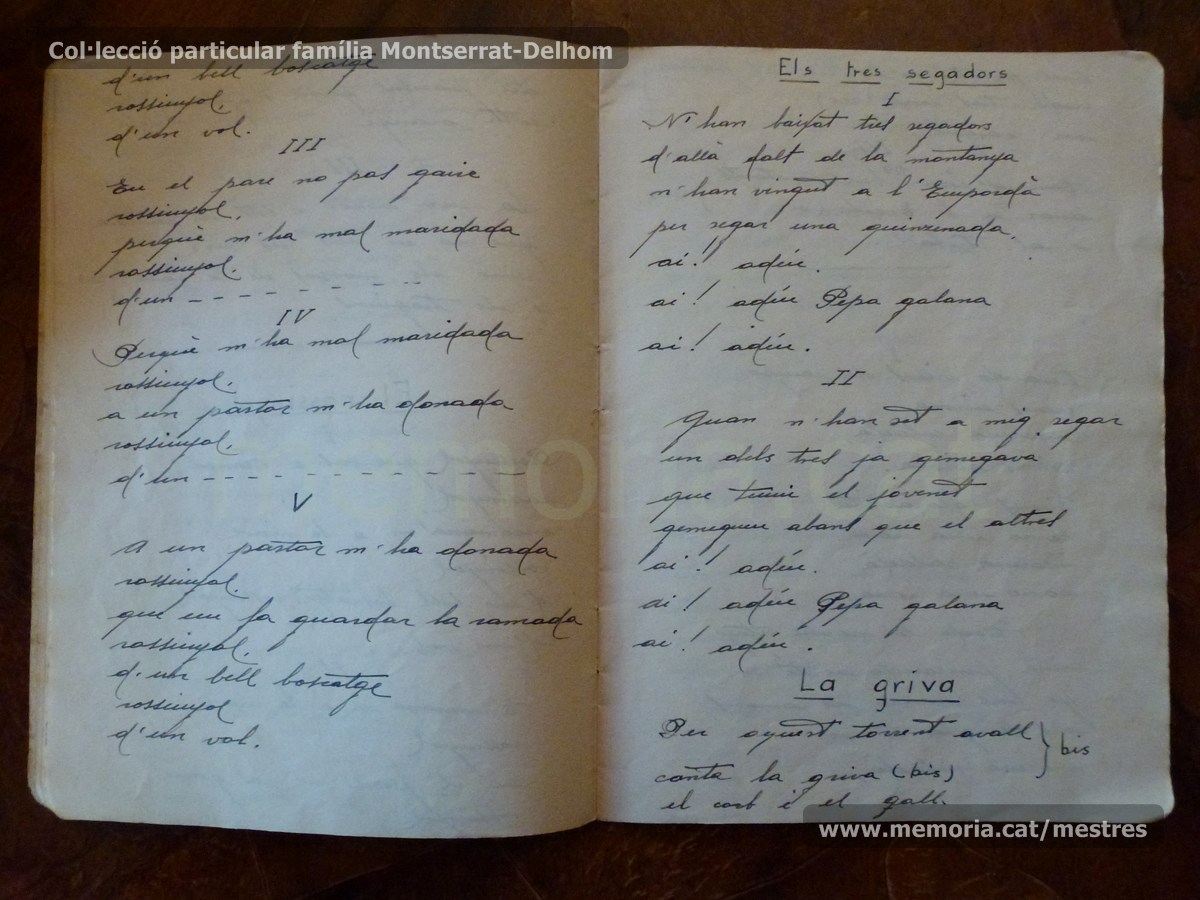 Col·lecció particular família Montserrat-Delhom
d'un bell boscatge
rossinyol.
d'un vol.
III
En el pare no pas gaire
rossinyol.
perquè m'ha mal maridada
rossinyol.
d'un _ _ _ _ _ _ _ _ _
IV
Perquè m'ha mal maridada
rossinyol.
a un pastor m'ha donada
rossinyol.
d'un _ _ _ _ _ _ _ _ _ _ _ _
V
A un pastor m'ha donada
rossinyol.
que em fa guardar la ramada
rossinyol.
d'un bell boscatge
rossinyol
d'un vol.
Els tres segadors
I
N'han baixat tres segadors
d'allà dalt de la montanya
n'han vingut a l'Empordà
per segar una quinzenada.
ai! adéu.
ai! adéu Pepa galana
ai! adéu.
II
Quan n'han set a mig segar
un dels tres ja gemegava
que teniu el jovenet
gemegueu abans que el altres
ai! adéu.
ai! adéu Pepa galana
ai! adéu.
La griva
Per aquest torrent avall } bis
canta la griva (bis)
el corb i el gall.
www.memoria.cat/mestres